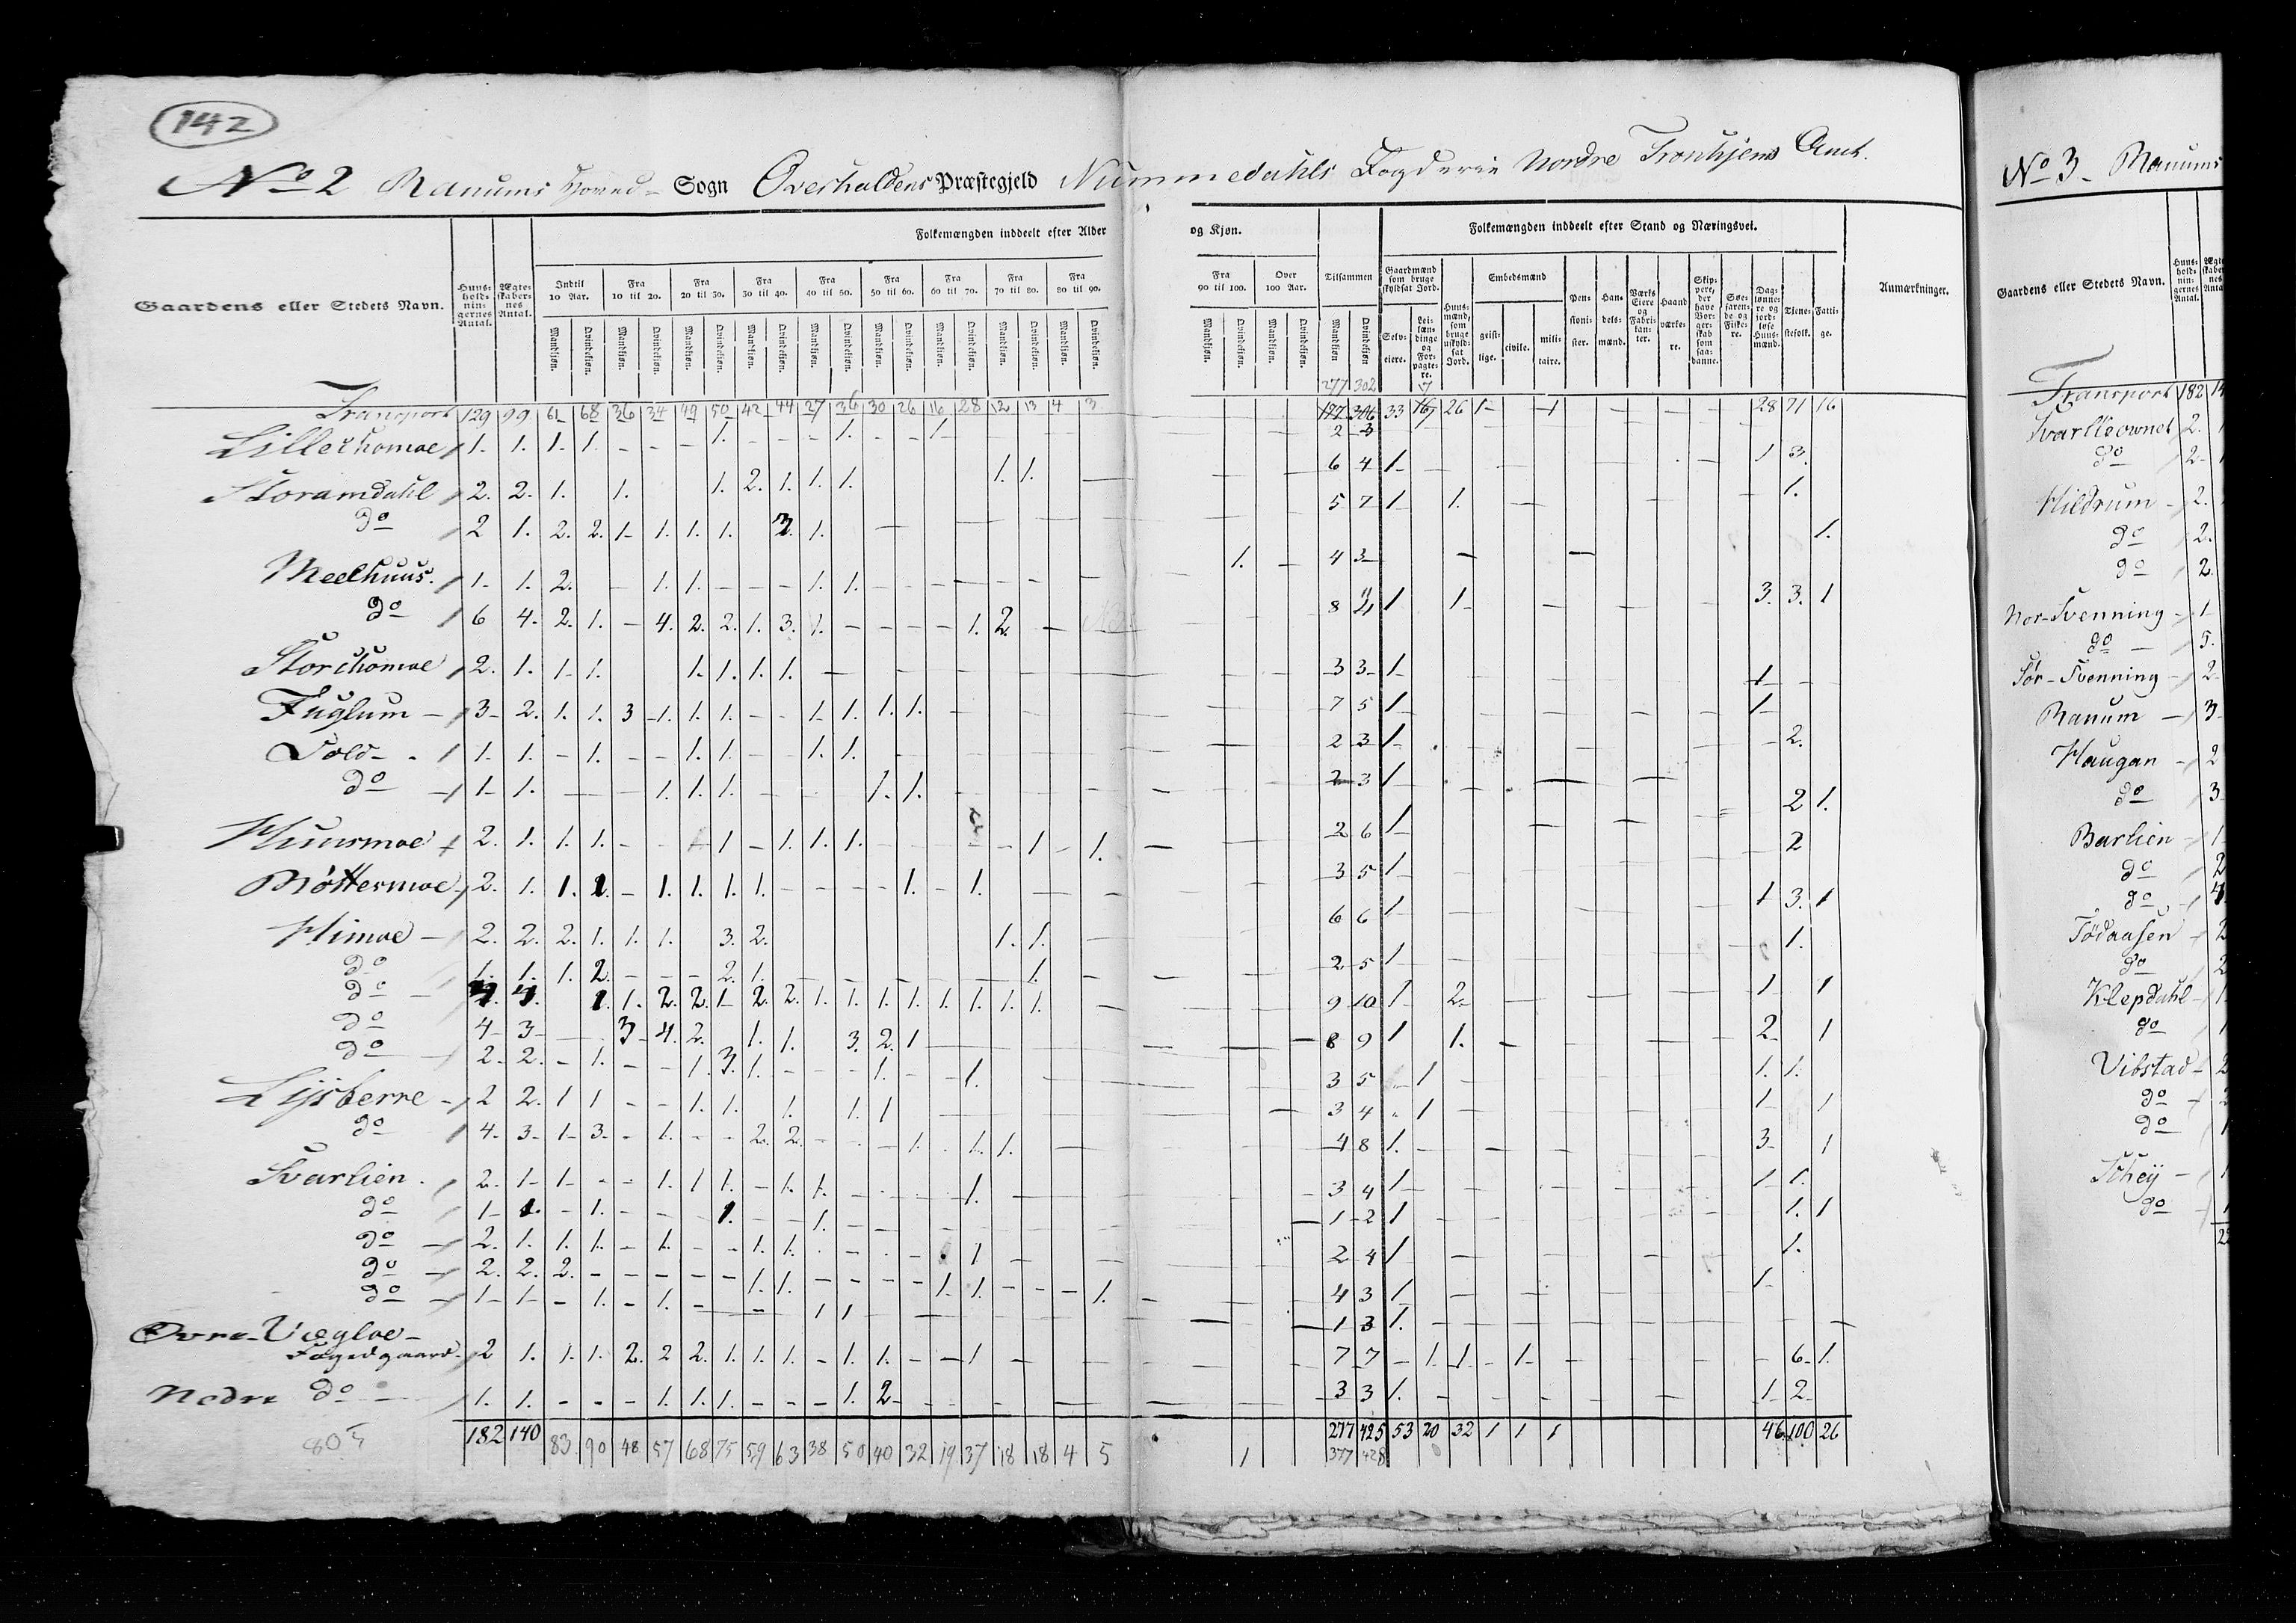 142
No 2 Ranums Hoved- Sogn Overhaldens Præstegjeld Nummedahls Fogderie Nordre Tronhjems Amt.
Gaardens eller Stedets Navn. Huus-hold-nin-gernes Antal. Ægte-skaber-nes Antal. Folkemængden inddeelt efter Alder og Kjøn. Tilsammen Folkemængden inddeelt efter Stand og Næringsvei. Anmærkninger.
Indtil 10 Aar. Fra 10 til 20. Fra 20 til 30. Fra 30 til 40. Fra 40 til 50. Fra 50 til 60. Fra 60 til 70. Fra 70 til 80. Fra 80 til 90. Fra 90 til 100. Over 100 Aar.
Gaardmænd som bruge skyldsat Jord. Huus-mænd, som bruge uskyld-sat Jord. Embedsmænd Pen-sioni-ster. Han-dels-mænd. Værks Eiere og Fabri-kan-ter. Haand værke-re. Skip-pere, der have Bor-ger-skab som saa-danne. Søe-faren-de og Fiske-re. Dag-lønne-re og jord-løse Huus-mænd. Tjene-stefolk. Fatti-ge.
Mandkjøn. Qvindekjøn. Selv-eiere. Lei-læn-dinge og For-pagte-re. geist-lige. civile. mili-taire.
277 302 7
Transport 129 99 61 68 36 34 49 50 42 44 27 36 30 26 16 28 12 13 4 3 306 33 16 26 1 1 28 71 16
Lillethomoe 1. 1. 1. 1. - - - 1. - - - 1. - - 1- 2 3
Storamdahl 2. 2. 1. 1. 1. 2. 1. 1. 1. 1. 1. 6 4 1- 1 3.
do 2 1. 2. 2. 1- 1. 1. 1. 3. 1. 5 7 1- 1. 1.
Meelhuus. 1- 1. 2. - 1. 1. - - - 1. 1. 1. 4 3 1.
do 6 4. 2. 1. - 4. 2. 2. 1. 3. 1. - - - - 1. 2. 8 11 1 1- 3. 3. 1
Storchomoe 2. 1. 1- 1. 1. 1. 1. 1. 3 3 1- 1-
Fuglum - 3- 2. 1. 1. 3 1. 1. 1. - - 1- 1. 1. 1. 7 5 1- 1-
Sold - 1. 1. - 1. - - 1. 1. - 1. 1. 2 3 1- 2.
do 1- 1. - - 1. 1. 1. 1. 1. 2 3 1
Huusmoe 2. 1. 1. 1. - - 1 - 1. 1. 1. 1 1. 2 6 1- 2 1.
Møttermoe 2. 1. 1. 2. - 1. 1. 1. 1. - - - - 1. - 1. 3 5 1- 2
Himoe - 2. 2. 2. 1. 1. 1. 3. 2. 1. 1. 6 6 1- 1 3. 1
do 1. 1. 1. 2. - - - 2. 1. 1. 2 5 1- 1.
do 4. 4. 1. 1. 2. 2. 1- 2. 2. 1. 1. 1. 1. 1. 1. 1. 1. 9 10 1- 2- 1- 1
do 4- 3- 3- 4. 2. 1. 1. 3. 2. 1 8 9 1 1. 2- 1
do 2- 2. - 1. - - 1. 3. 1. - - - 1. - - 1. 3 5 1- 1. 1.
Lysberre - 2 2. 1 1 - - 1. 1. 1. 1. 1 3 4 1 1- 1
do 4- 3- 1- 3- - 1. - - 2. 2. 1. 1. 1. 4 8 1. 3- 1
Svarlien. 2. 1- 1- - - 1. 1 1. - 1. 1. 1. 3 4 1- 1- 1.
do 1- 1. - 1. - - - 1. - - 1. 1 2 1 1. 1
do 2. 1. 1. 1. - 1. - - 1. 1. 1 2 4 1 1.
do 2. 2. 2. - - - - - 1. 1. - - - - 1. 1. 4 3 1- 1-
do 1- 1- - 1. - 1. - - 1 1 1. 1 3 1.
Øvre-Vægloe-
Fogedgaard 2 1. 1. 1. 2. 2 2. 1. 1. 1. - 1. 1. - - 1 7 7 - 1. 1. - 1- 6- 1.
Nedre do 1. 1. - - - 1. 1. 1. - - - 1. 2- 3 3 1. 1 2-
182 140 277 425 53 20 32 1 1 1 46 100 26
83 90 48 57 68 75 59 63 38 50 40 32 19 37 18 18 4 5 1 377 428
No 3 - Ranums
Gaardens eller Stedets Navn.
Transport 182
Svartleownet 2.
do 2-
Hildrum - 2.
do 2.
do 2.
Nor-Svenning - 1-
do 5.
Sør-Svenning - 2-
Ranum - 3-
Haugan - 2
do 3
Barlien 1
do 2
do 4
Tødaasen 2
do 2
Klepdahl - 1
do 1
Vibstad - 2
do
do 1
Schey - 1
do 1